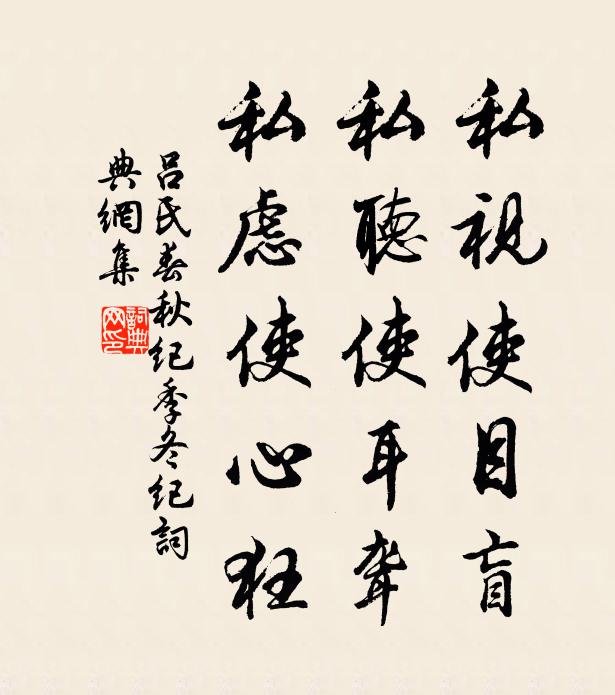 私視使目盲
私聽使耳聾
私慮使心狂
呂氏春秋紀季冬紀詞
典網集
詞典
网印